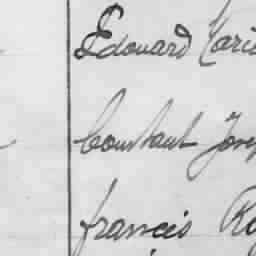 Edouard Marie
Constant Josep
francis Ro